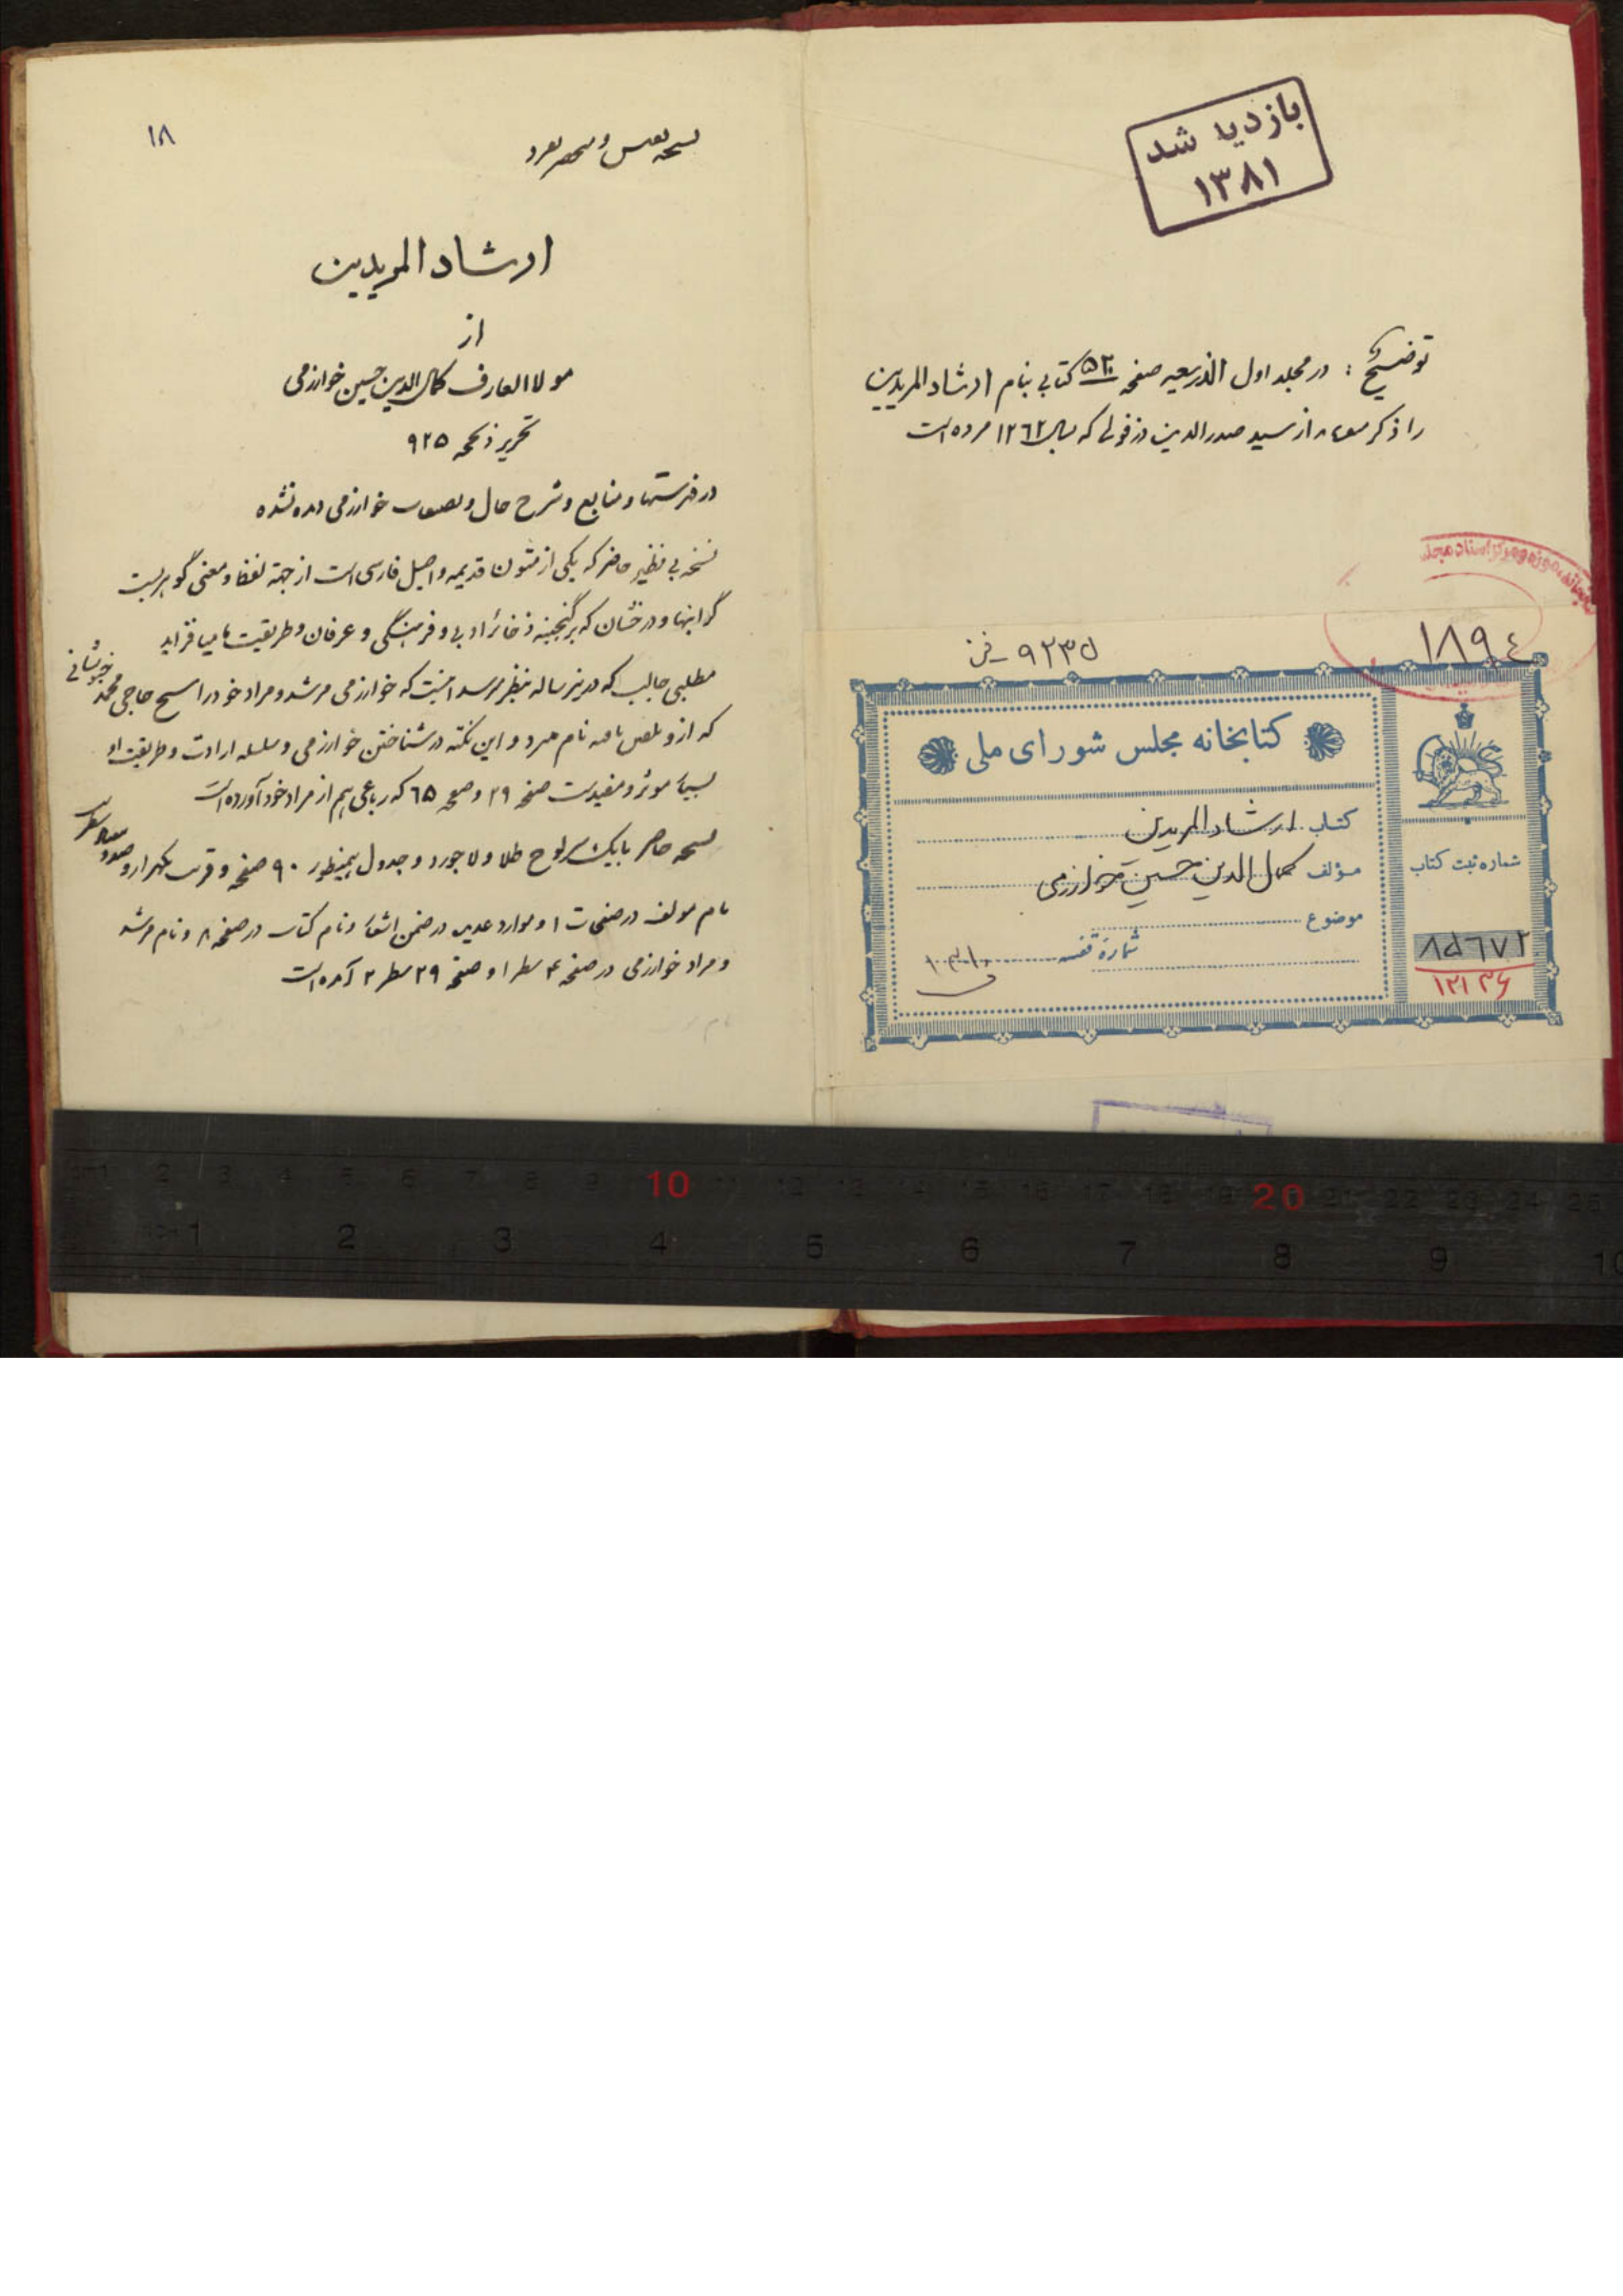 بازدید شد
۱۳۸۱
توضیح : در مجلد اول الذریعه صفحه ۵۲۰ کتابی بنام ارشاد المریدین
را ذکر از سید صدرالدین دزفولی که بسال ۱۲۶۲ مرده است
۹۲۳۵ - فن
۱۸۹٤
کتابخانه مجلس شورای ملی
کتاب ارشاد المریدین
مؤلف کمال الدین حسین خوارزمی
موضوع
شماره قفسه
شماره ثبت کتاب
۸۵٦۷۲
۱۲۱۳۶
۱۸
نسخه نفیس و منحصر بفرد
ارشاد المریدین
از
مولا العارف کمال الدین حسین خوارزمی
تحریر ذیحجه ۹۲۵
در فهرستها و منابع و شرح حال و خوارزمی دیده نشده
نسخه بی نظیر حاضر که یکی از متون قدیمه و اصیل فارسی است از جهة لفظ و معنی گوهریست
گرانبها و درخشان که بر گنجینه ذخائر ادبی و فرهنگی و عرفان و طریقت ما میافزاید
مطلبی جالب که درینرساله بنظر میرسد اینست که خوارزمی مرشد و مراد خود را شیخ حاجی محمد خبوشانی
که ازو نام میبرد و این نکته در شناختن خوارزمی و سلسله ارادت و طریقت او
بسیار موثر و مفیدست صفحه ۲۹ و صفحه ۶۵ که رباعی هم از مراد خود آورده است
نسخه حاضر با یک سرلوح طلا و لاجورد و جدول بهمینطور ۹۰ صفحه و قریب یکهزار و صد و
نام مولف در صفحات ۱ و موارد عدیده در ضمن اشعار و نام کتاب در صفحه ۸ و نام مرشد
و مراد خوارزمی در صفحه ۴ سطر ۱ و صفحه ۲۹ سطر ۲ آمده است
10 20
1 2 3 4 5 6 7 8 9 10